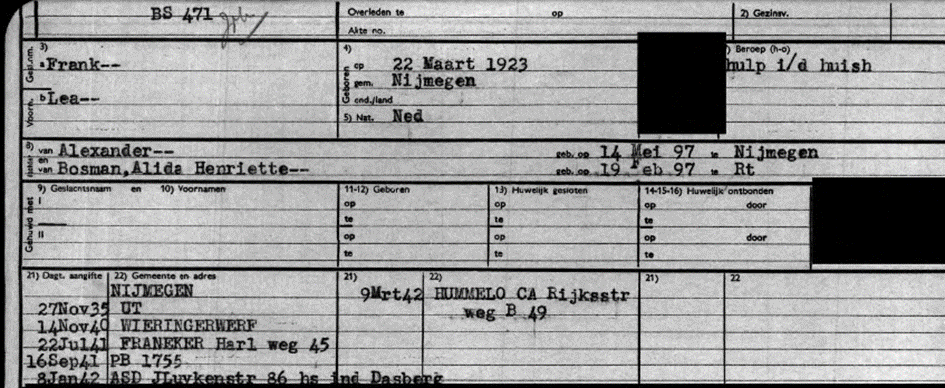 BS 471
Overleden te op
Akte no.
2) Gezinsv.
3)
Gesl.nm. a Frank--
Voorn. b Lea--
4)
Geboren op 22 Maart 1923
gem. Nijmegen
cnd./land
5) Nat. Ned
) Beroep (h-o)
hulp i/d huish
8) van Alexander-- geb. op 14 Mei 97 te Nijmegen
en van Bosman,Alida Henriette-- geb. op 19 Feb 97 te Rt
9) Geslachtsnaam en 10) Voornamen 11-12) Geboren 13) Huwelijk gesloten 14-15-16) Huwelijk ontbonden
Gehuwd met I op op op door
te te te
II op op op door
te te te
21) Dagt. aangifte 22) Gemeente en adres 21) 22) 21) 22
NIJMEGEN 9Mrt42 HUMMELO CA Rijksstr
27Nov35 UT weg B 49
14Nov40 WIERINGERWERF
22Jul41 FRANEKER Harl weg 45
16Sep41 PB 1755
8Jan42 ASD JLuykenstr 86 hs ind Dasberg